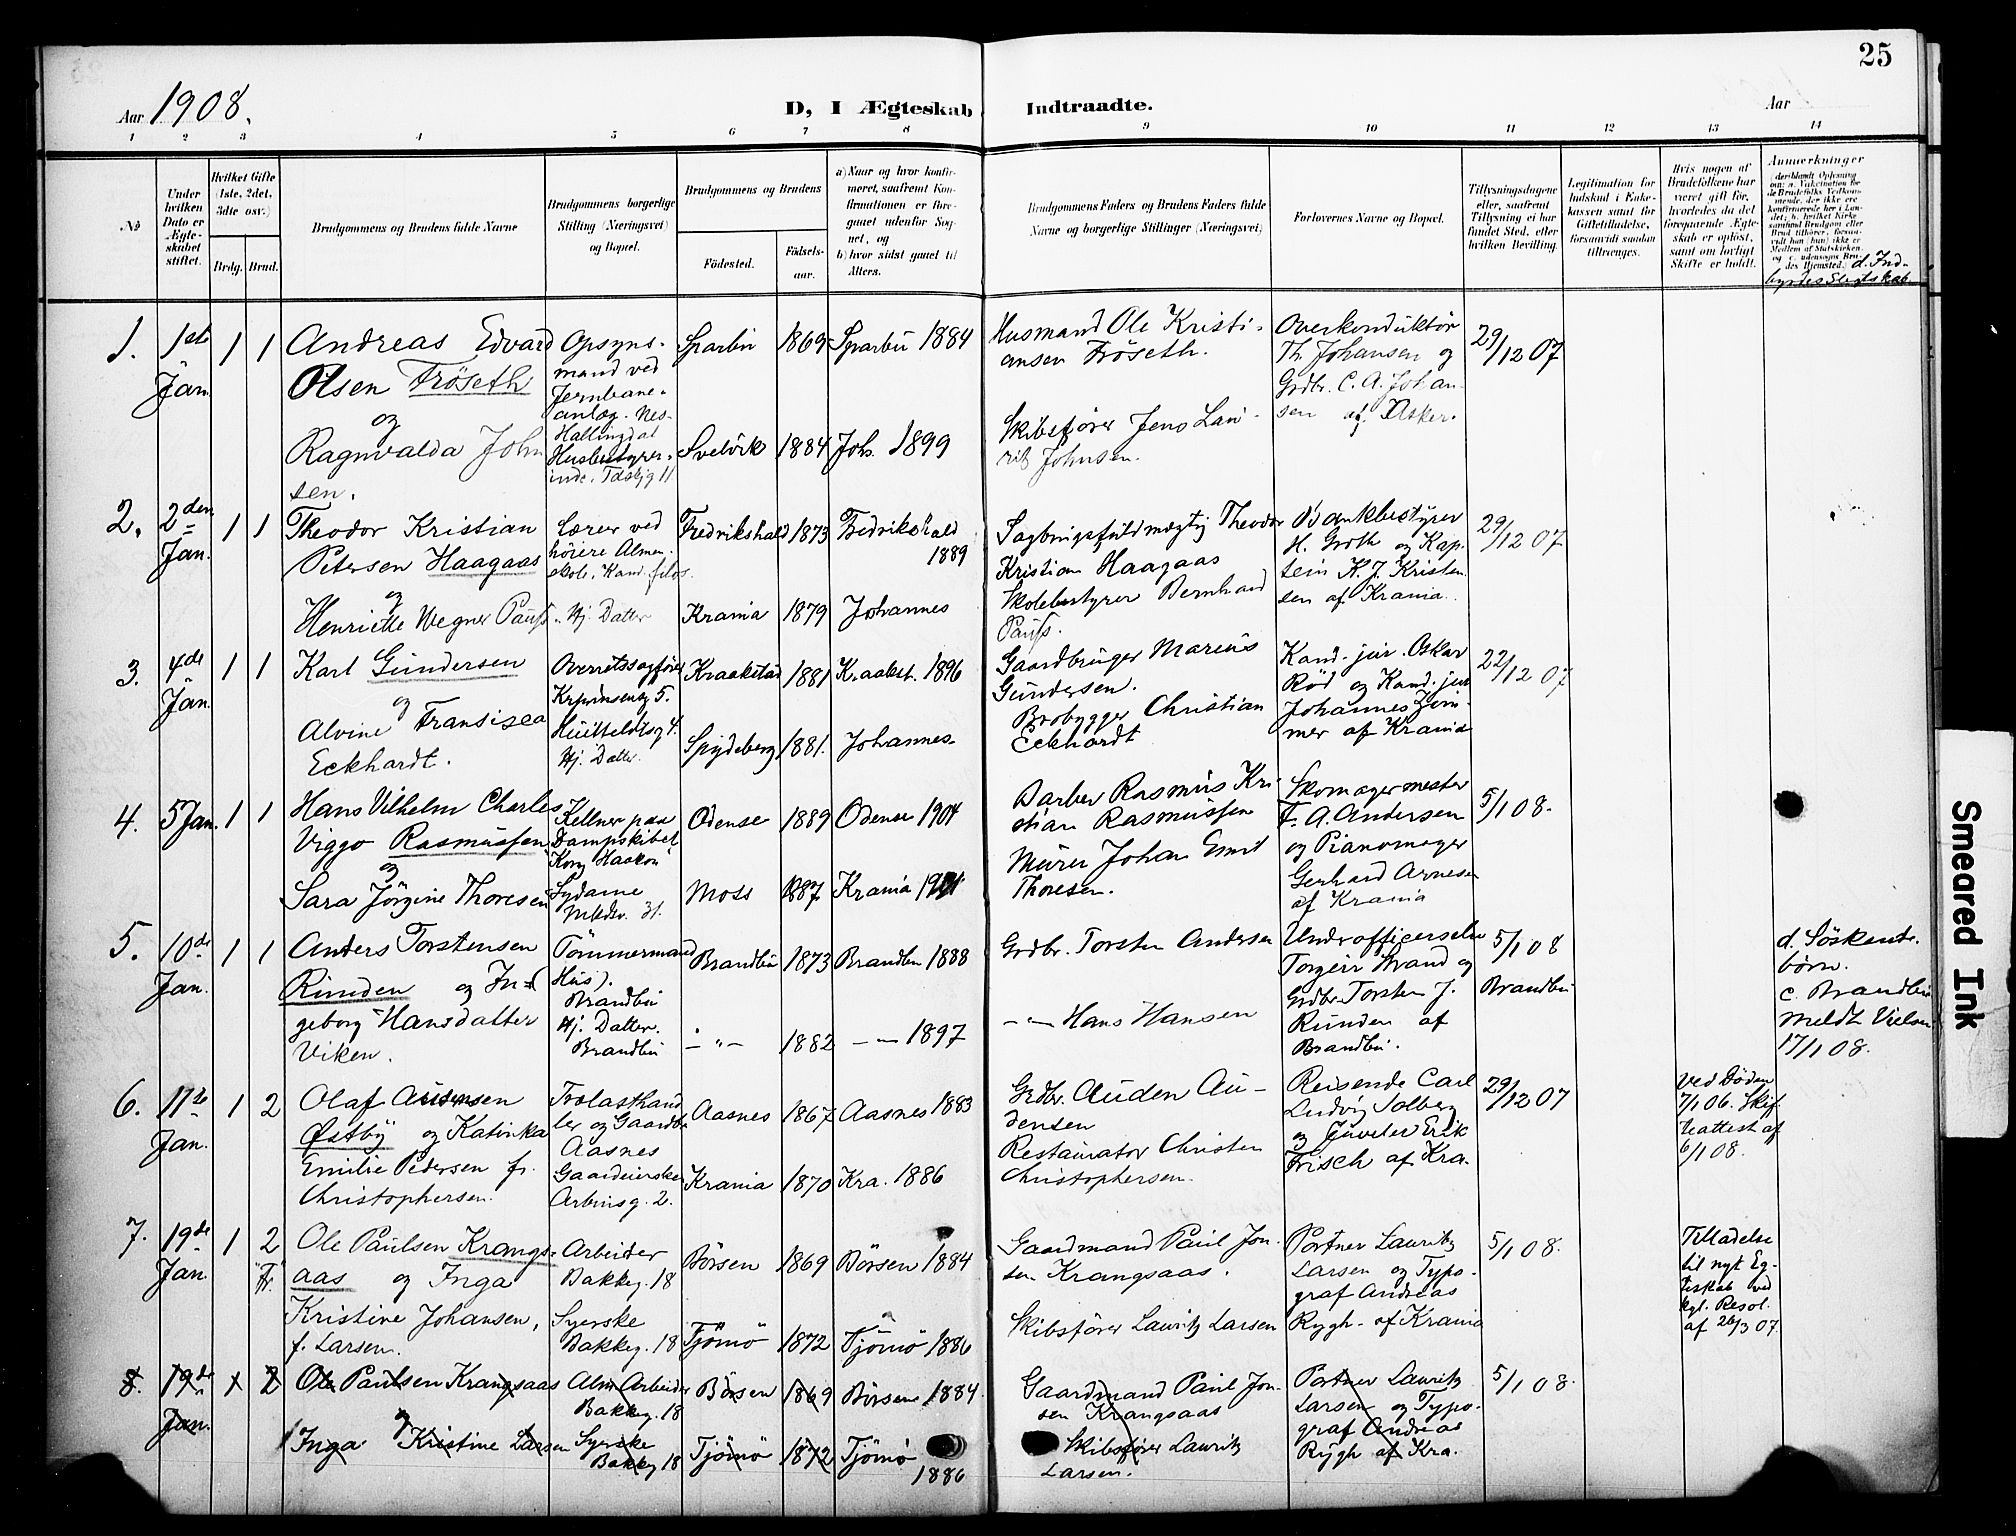 25
Aar 1908.
D, I Ægteskab Indtraadte.
Aar
1 2 3 4 5 6 7 8 9 10 11 12 13 14
No
Under hvilken Dato er Ægteskabet stiftet.
Hvilket Gifte (1ste, 2det, 3die osv.)
Brdg. Brud.
Brudgommens og Brudens fulde Navne
Brudgommens borgerlige Stilling (Næringsvei) og Bopæl.
Brudgommens og Brudens
Fødested.
Fødsels-aar.
a) Naar og hvor konfirmeret, saafremt Konfirmationen er foregaaet udenfor Sognet, og
b) hvor sidst gaaet til Alters.
Brudgommens Faders og Brudens Faders fulde Navne og borgerlige Stillinger (Næringsvei)
Forlovernes Navne og Bopæl.
Tillysningsdagene eller, saafremt Tillysning ei har fundet Sted, efter hvilken Bevilling.
Legitimation for Indskud i Enkekassen samt for Giftetilladelse, forsaavidt saadan tiltrænges.
Hvis nogen af Brudefolkene har været gift før, hvorledes da det foregaaende Ægteskab er opløst, samt om lovligt Skifte er holdt.
Anmærkninger
d. Ind-
byrdes Slegtskab.
1. 1ste Jan. 1 1
Andreas Edvard
Olsen Fröseth
og
Ragnvalda John
sen.
Opsyns-
mand ved
Jernbane-
anlæg. Nes-
Hallingdal
Husbestyrer-
inde.
Sparbu 1869 Sparbu 1884
Svelvik 1884 Joh. 1899
Husmand Ole Kristi-
ansen Fröseth.
Skibsfører Jens Lau-
ritz Johnsen.
Overkonduktör
Th. Johansen og
Grdbr. C. A. Johan-
sen af Asker.
29/12 07
2. 2den Jan. 1 1
Theodor Kristian
Petersen Haagaas
og
Henriette Wegner Pauss
Lærer ved
höiere Almen-
skole, Kand. filos.
Hj. Datter
Fredrikshald 1873 Fredrikshald
1889
Krania 1879 Johannes
Sagbrugsfuldmægtig Theodor
Kristian Haagaas
Skolebestyrer Bernhard
Pauss.
Bankbestyrer
H. Groth og Kap-
tein K. J. Kristen
sen af Krania.
29/12 07
3. 4de Jan. 1 1
Karl Gundersen
og
Alvine Fransisca
Eckhardt.
Overretssagfører
Krprinsensg 5.
Huitfeldtsg 4.
Hj. Datter.
Kraakstad 1881 Kraakst. 1896
Spydeberg 1881. Johannes.
Gaardbruger Marius
Gundersen.
Brobygger Christian
Eckhardt
Kand. jur. Oskar
Röd og Kand. jur
Johannes Zim-
mer af Krania
22/12 07
4. 5 Jan. 1 1
Hans Vilhelm Charles
Viggo Rasmussen
og
Sara Jörgine Thoresen
Kellner paa
Dampskibet
"Kong Haakon"
Sydame
31.
Odense 1889 Odense 1904
Moss 1887 Krania
Barber Rasmus Kri-
stian Rasmussen
Murer Johan Emil
Thoresen.
Skomagermester
F. A. Andersen
og Pianomager
Gerhard Arnesen
af Krania
5/1 08.
5. 10de Jan. 1 1
Anders Torstensen
Runden og In-
geborg Hansdatter
Viken.
Tömmermand
Hus).
Brandbu
Hj. Datter.
Brandbu
Brandbu 1873 Brandbu 1888
– " – 1882 – " – 1897
Grdbr. Torsten Andersen
– " – Hans Hansen
Underofficerselev
Torgeir Strand og
Grdbr. Torsten J.
Runden af
Brandbu.
5/1 08
Brandbu
d. Söskende-
börn.
c. Brandbu
Meldt Vielsen
17/1 08.
6. 17de Jan. 1 2
Olaf Audensen
Østby og Katinka
Emilie Pedersen f.
Christophersen.
Trælasthand
ler og Gaardbr.
Aasnes
Gaardeierske
Arbinsg. 2.
Aasnes 1867 Aasnes 1883
Krania 1870 Kra. 1886
Grdbr. Auden Au-
densen
Restaurator Christen
Christophersen.
Reisende Carl
Ludvig Solberg
og Juveler Erik
Frisch af Kra.
29/12 07
Ved Döden
7/1 06. Skif-
teattest af
6/1 08.
7. 19de Jan. 1 2
"Fr."
Ole Paulsen Krangs-
aas og Inga
Kristine Johansen,
f. Larsen.
Arbeider
Bakkeg. 18
Syerske
Bakkeg. 18
Börsen 1869 Börsen 1884
Tjömö 1872 Tjömö 1886
Gaardmand Paul Jon-
sen Krangsaas.
Skibsfører Lauritz Larsen
Portner Lauritz
Larsen og Typo-
graf Andreas
Rygh. af Krania
5/1 08.
Tilladelse
til nyt Eg-
teskab ved
kgl. Resol.
af 26/3 07.
8. 19de Jan. 1 2
Ole Paulsen Krangsaas
og
Inga Kristine Larsen
Alm Arbeider
Bakkeg. 18
Syerske
Bakkeg 18
Börsen 1869 Börsen 1884.
Tjömö 1872 Tjömö
1886
Gaardmand Paul Jon-
sen Krangsaas
Skibsfører Lauritz
Larsen.
Portner Lauritz
Larsen og Typo-
graf Andreas
Rygh af Kra.
5/1 08.
Smeared Ink